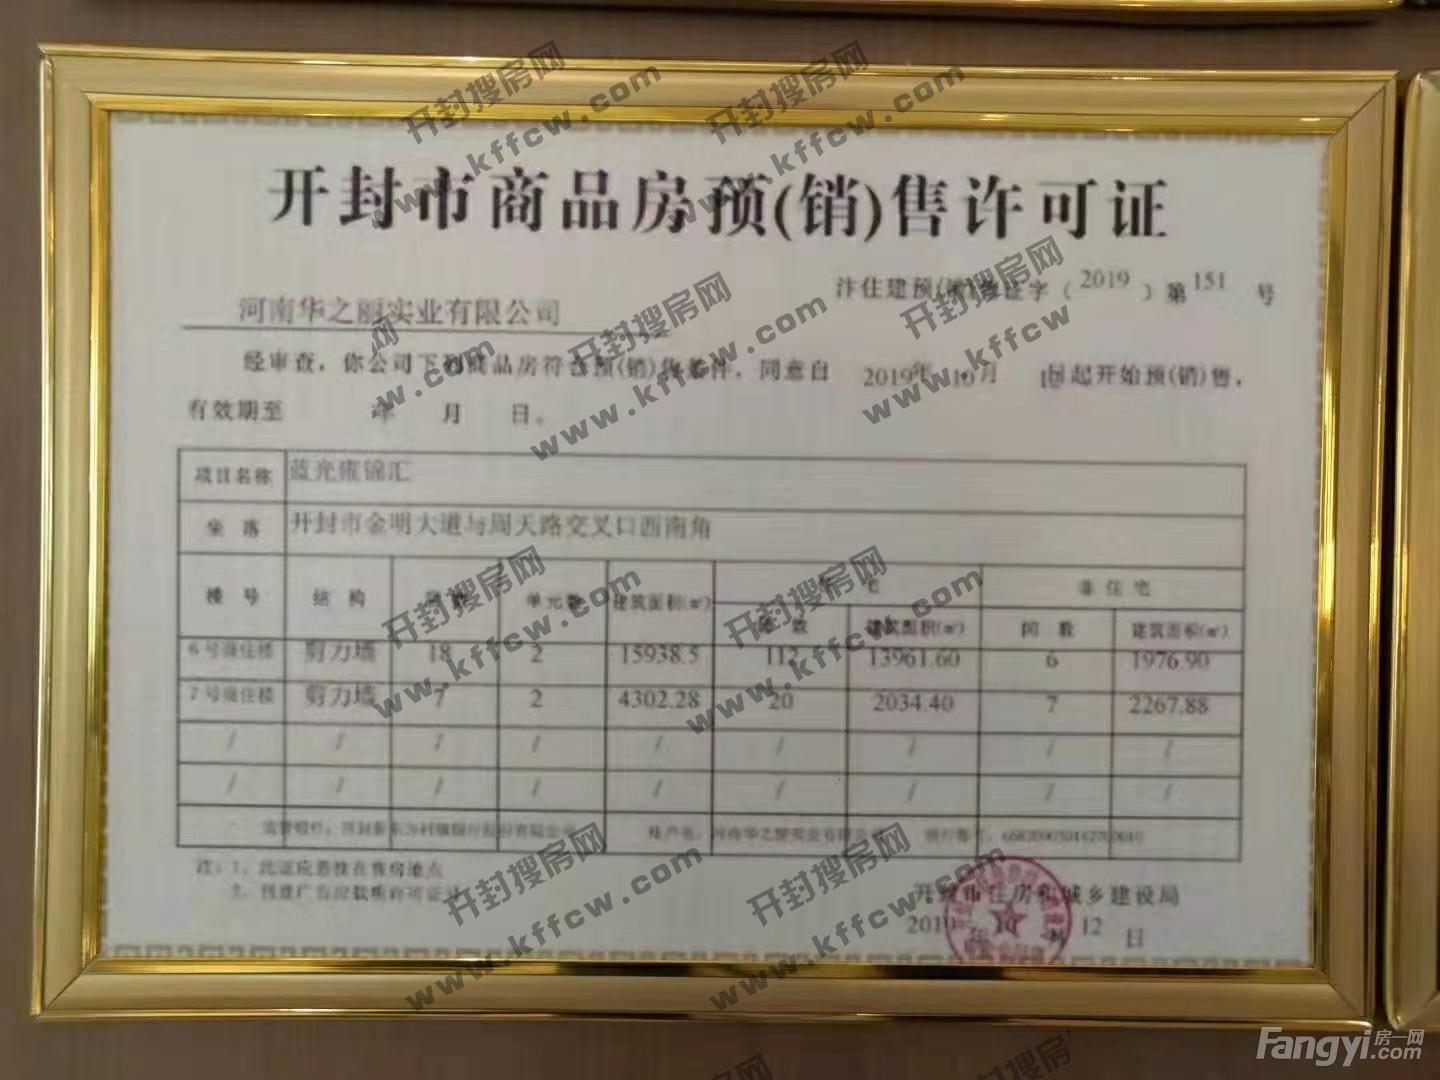 开封市商品房预(销)售许可证
汴住建预(销)售证字（2019）第151号
河南华之丽实业有限公司
经审查，你公司下列商品房符合预(销)售条件，同意自2019年10月 日起开始预(销)售，
有效期至 年 月 日。
项目名称 蓝光雍锦汇
坐落 开封市金明大道与周天路交叉口西南角
楼号 结构 层数 单元数 建筑面积(㎡) 住宅 非住宅
套数 建筑面积(㎡) 间数 建筑面积(㎡)
6号商住楼 剪力墙 18 2 15938.5 112 13961.60 6 1976.90
7号商住楼 剪力墙 7 2 4302.28 20 2034.40 7 2267.88
/ / / / / / / / /
/ / / / / / / / /
监管银行： 账户名：河南华之丽实业有限公司 银行账号：
注：1、此证应悬挂在售房地点
2、刊登广告应载明许可证号
开封市住房和城乡建设局
2019年10月12日
开封搜房网
www.kffcw.com
开封搜房网
www.kffcw.com
开封搜房网
www.kffcw.com
开封搜房网
www.kffcw.com
开封搜房网
www.kffcw.com
开封搜房网
www.kffcw.com
开封搜房网
www.kffcw.com
开封搜房网
www.kffcw.com
开封搜房网
Fangyi.com
房一网